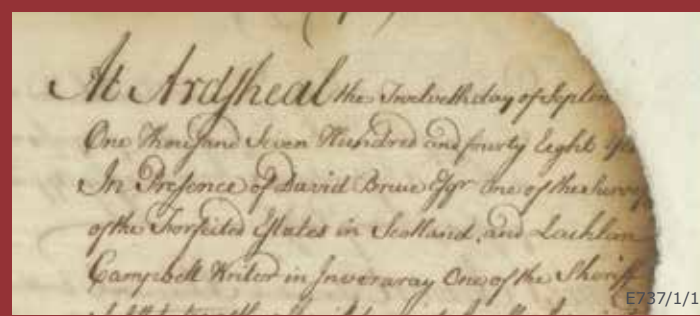 At Ardsheal the Twelvth day of Septem
One Thousand Seven Hundred and fourty Eight
In Presence of David Bruce Esqr One of the Survey
of the Forfeited Estates in Scotland, and Lachlan
Campbell Writer in Inveraray One of the Sheriff
E737/1/1